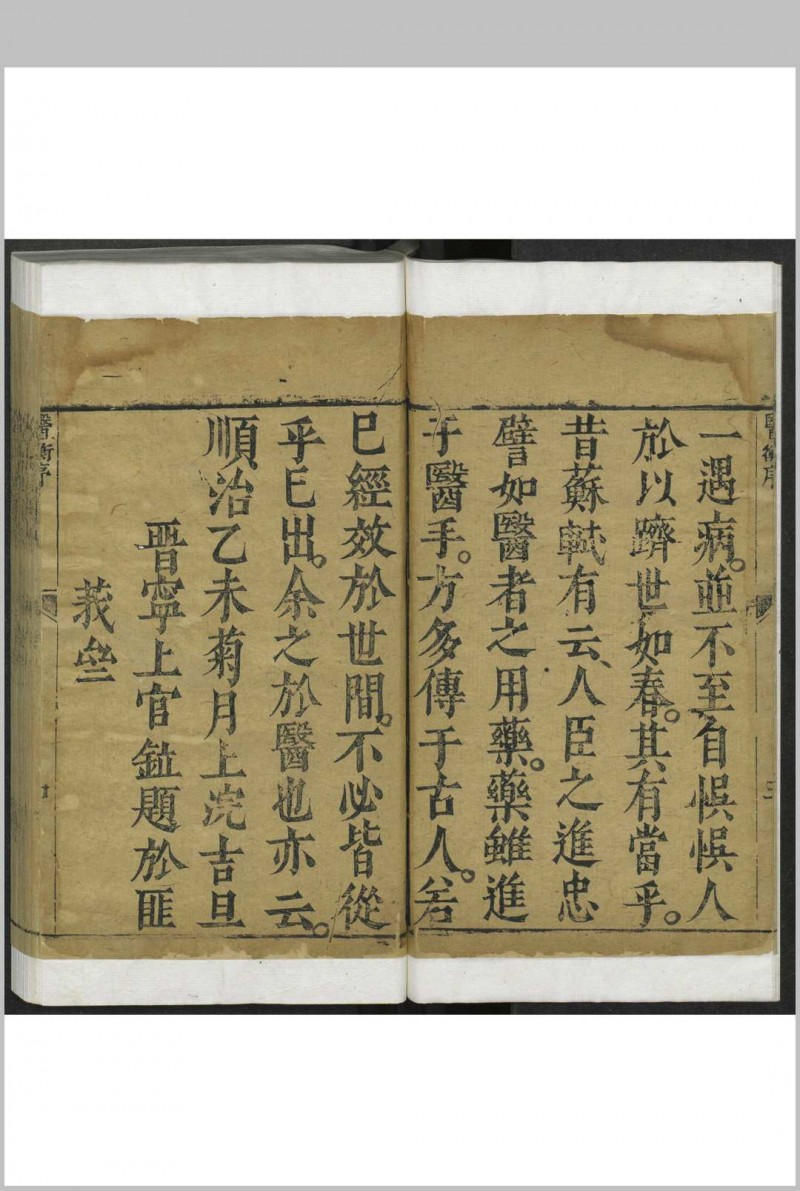 醫衡序
三
一遇病。並不至自悞悞人
於以躋世如春。其有當乎。
昔蘇軾有云、人臣之進忠
譬如醫者之用藥。藥雖進
于醫手。方多傳于古人。若
已經效於世間。不必皆從
乎已出。余之於醫也亦云。
順治乙未菊月上浣吉旦
晋寧上官鉝題於匪
莪
醫衡序